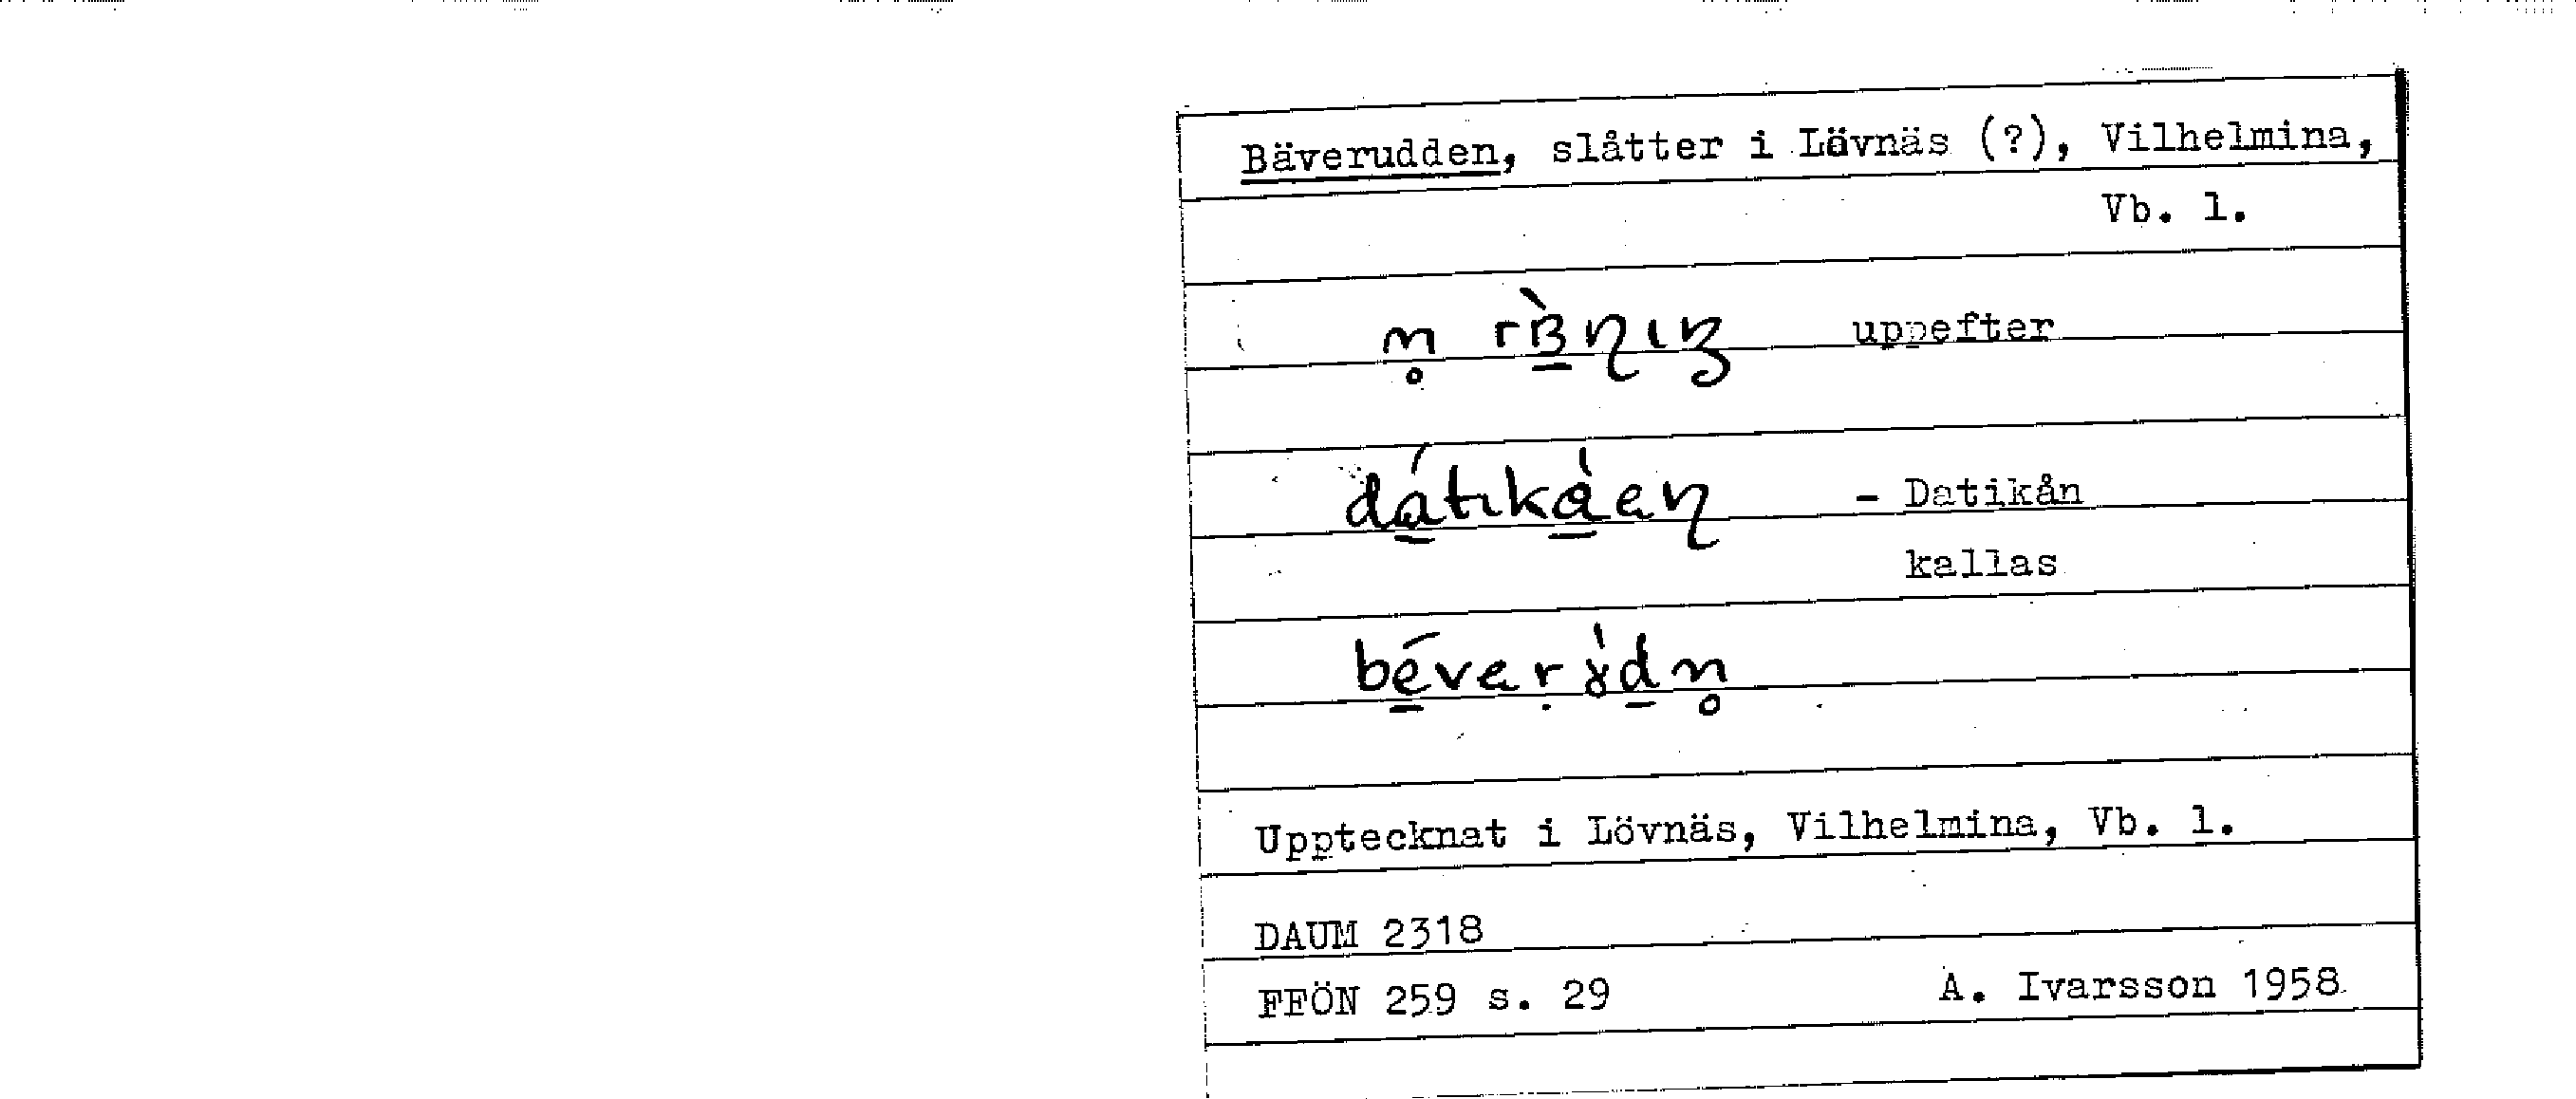 Bäverudden, slåtter i Lövnäs (?), Vilhelmina,
Vb. l.
uppefter
- Datikån
kallas
Upptecknat i Lövnäs, Vilhelmina, Vb. l.
DAUM 2318
FFÖN 259 s. 29 A. Ivarsson 1958